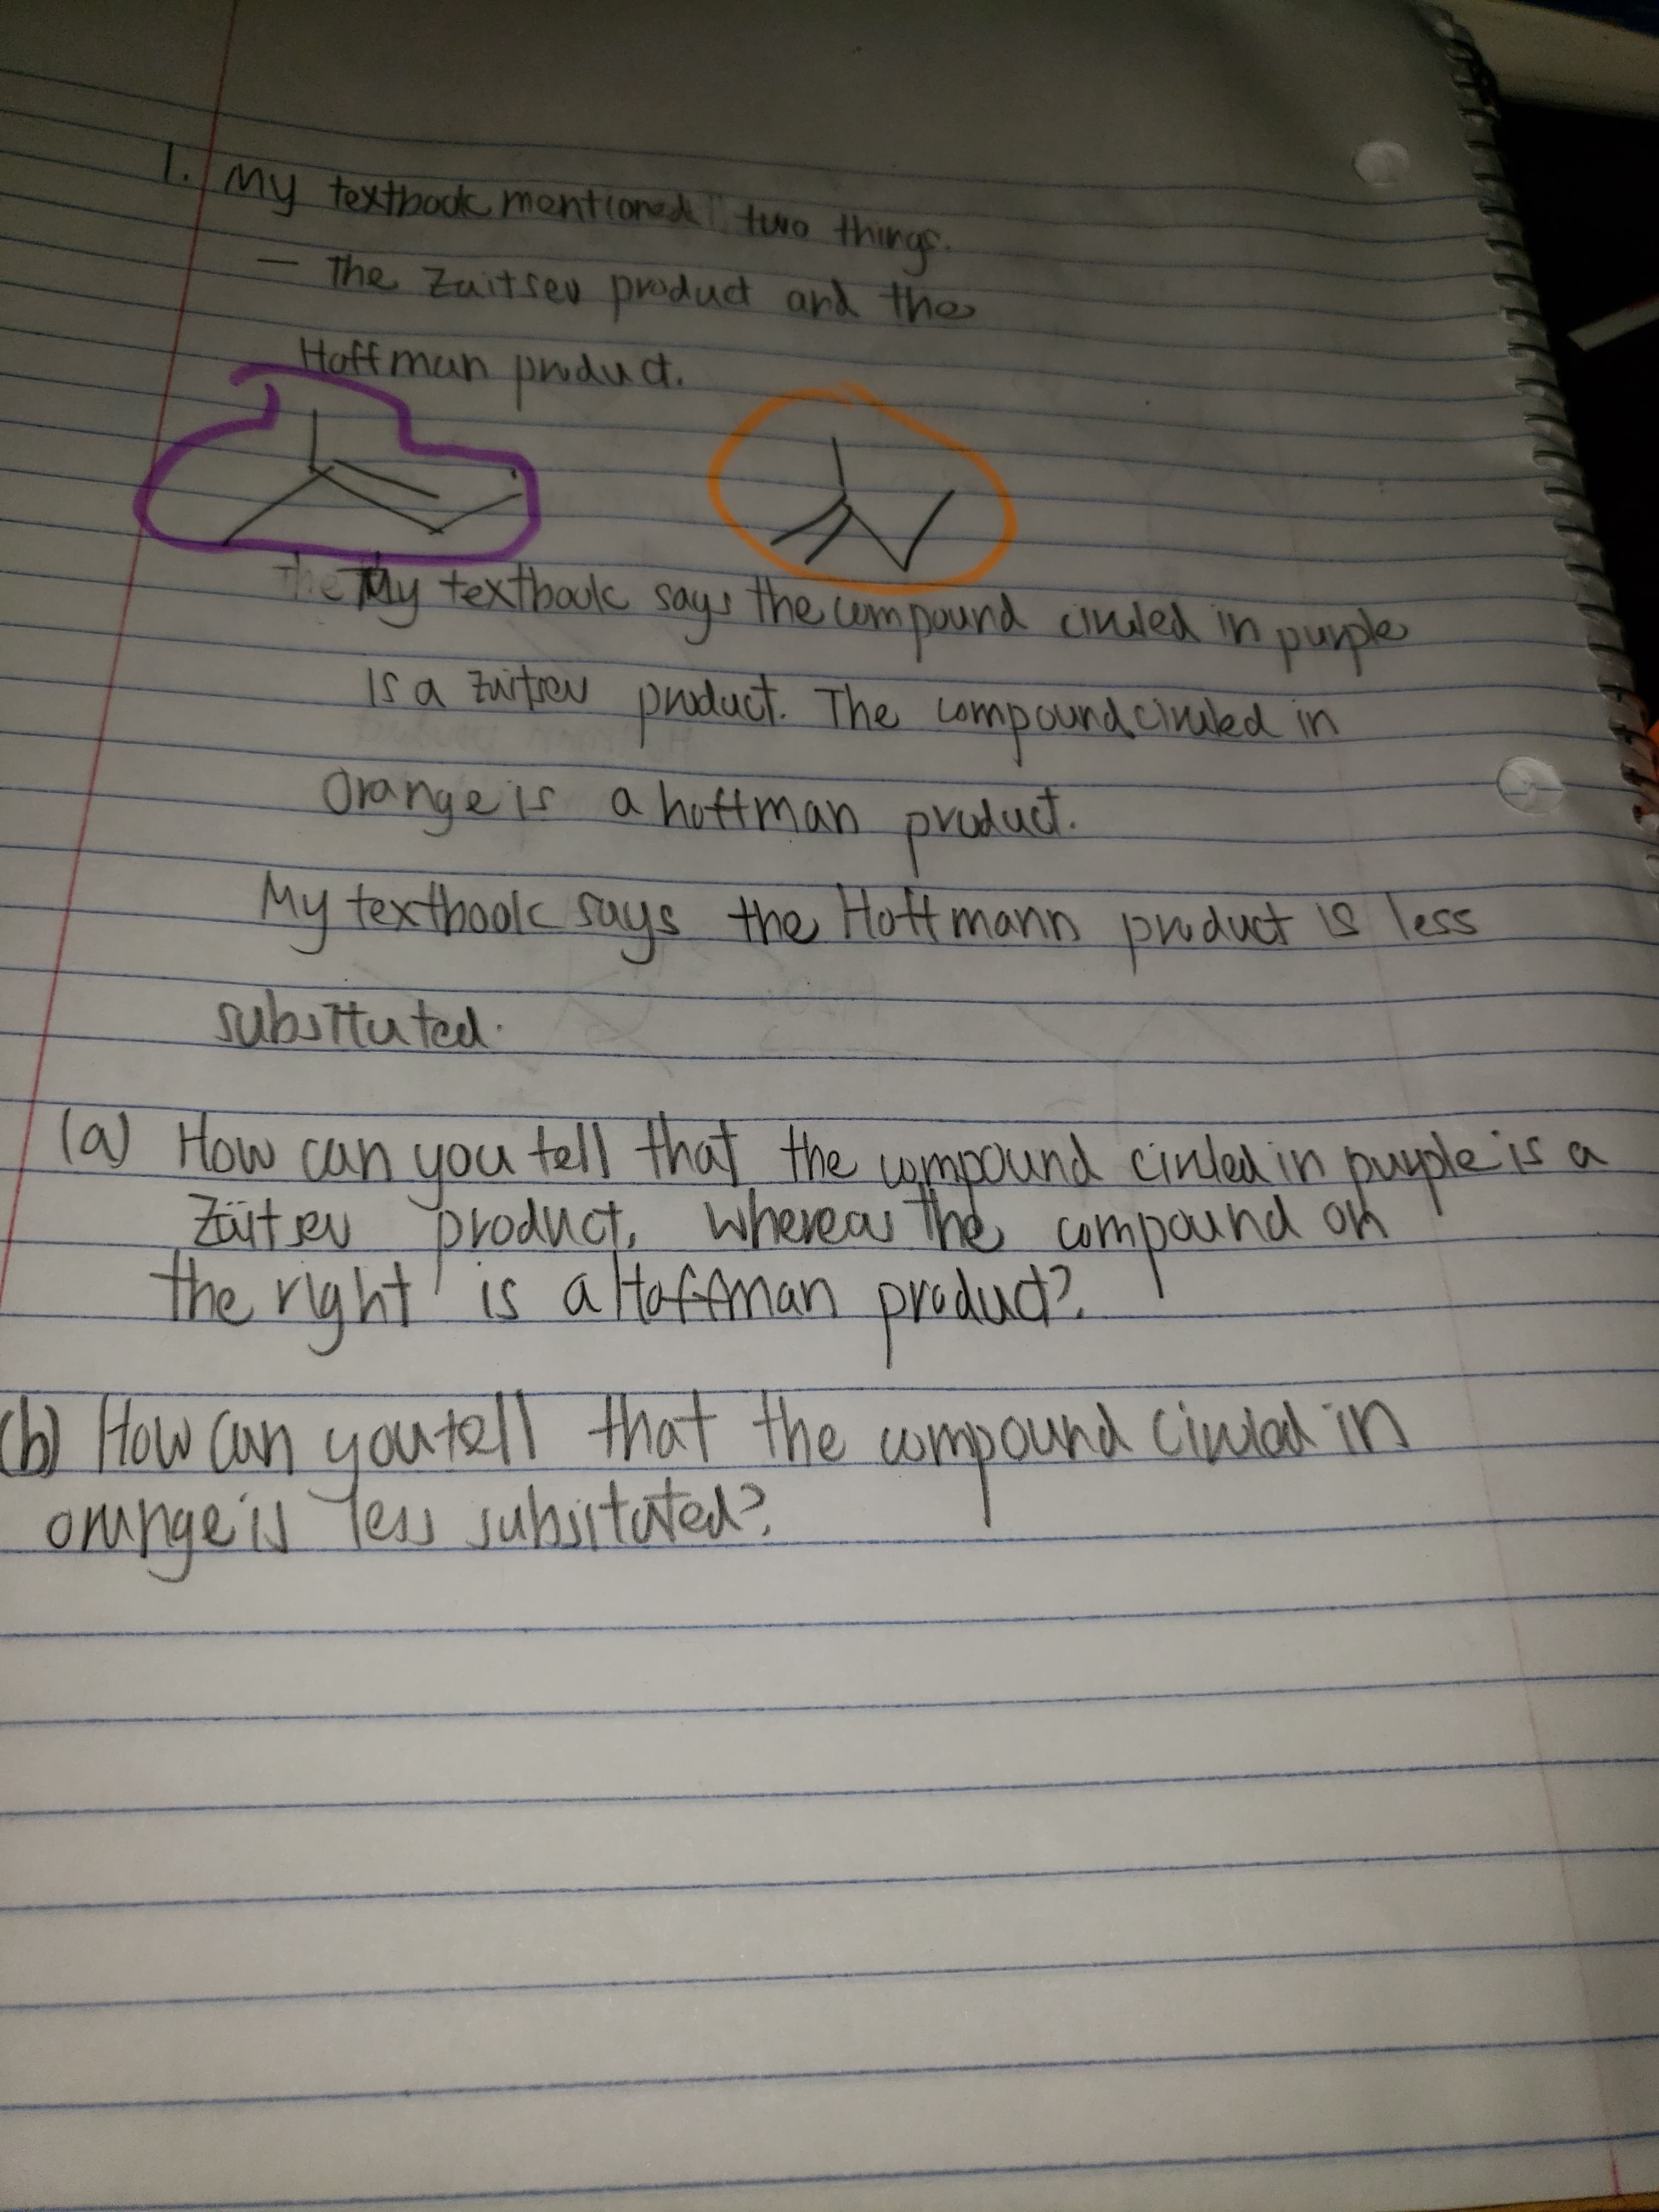 1. My textbook mentioned two things.
— The Zaitsev product and the
Hoffman product.
The My textbook says the compound circled in purple
is a Zaitsev product. The compound circled in
orange is a hoffman product.
My textbook says the Hoffmann product is less
subsituted.
(a) How can you tell that the compound circled in purple is a
Zaitsev product, whereas the compound on
the right is a Hoffman product?
(b) How can you tell that the compound circled in
orange is less subsituted?